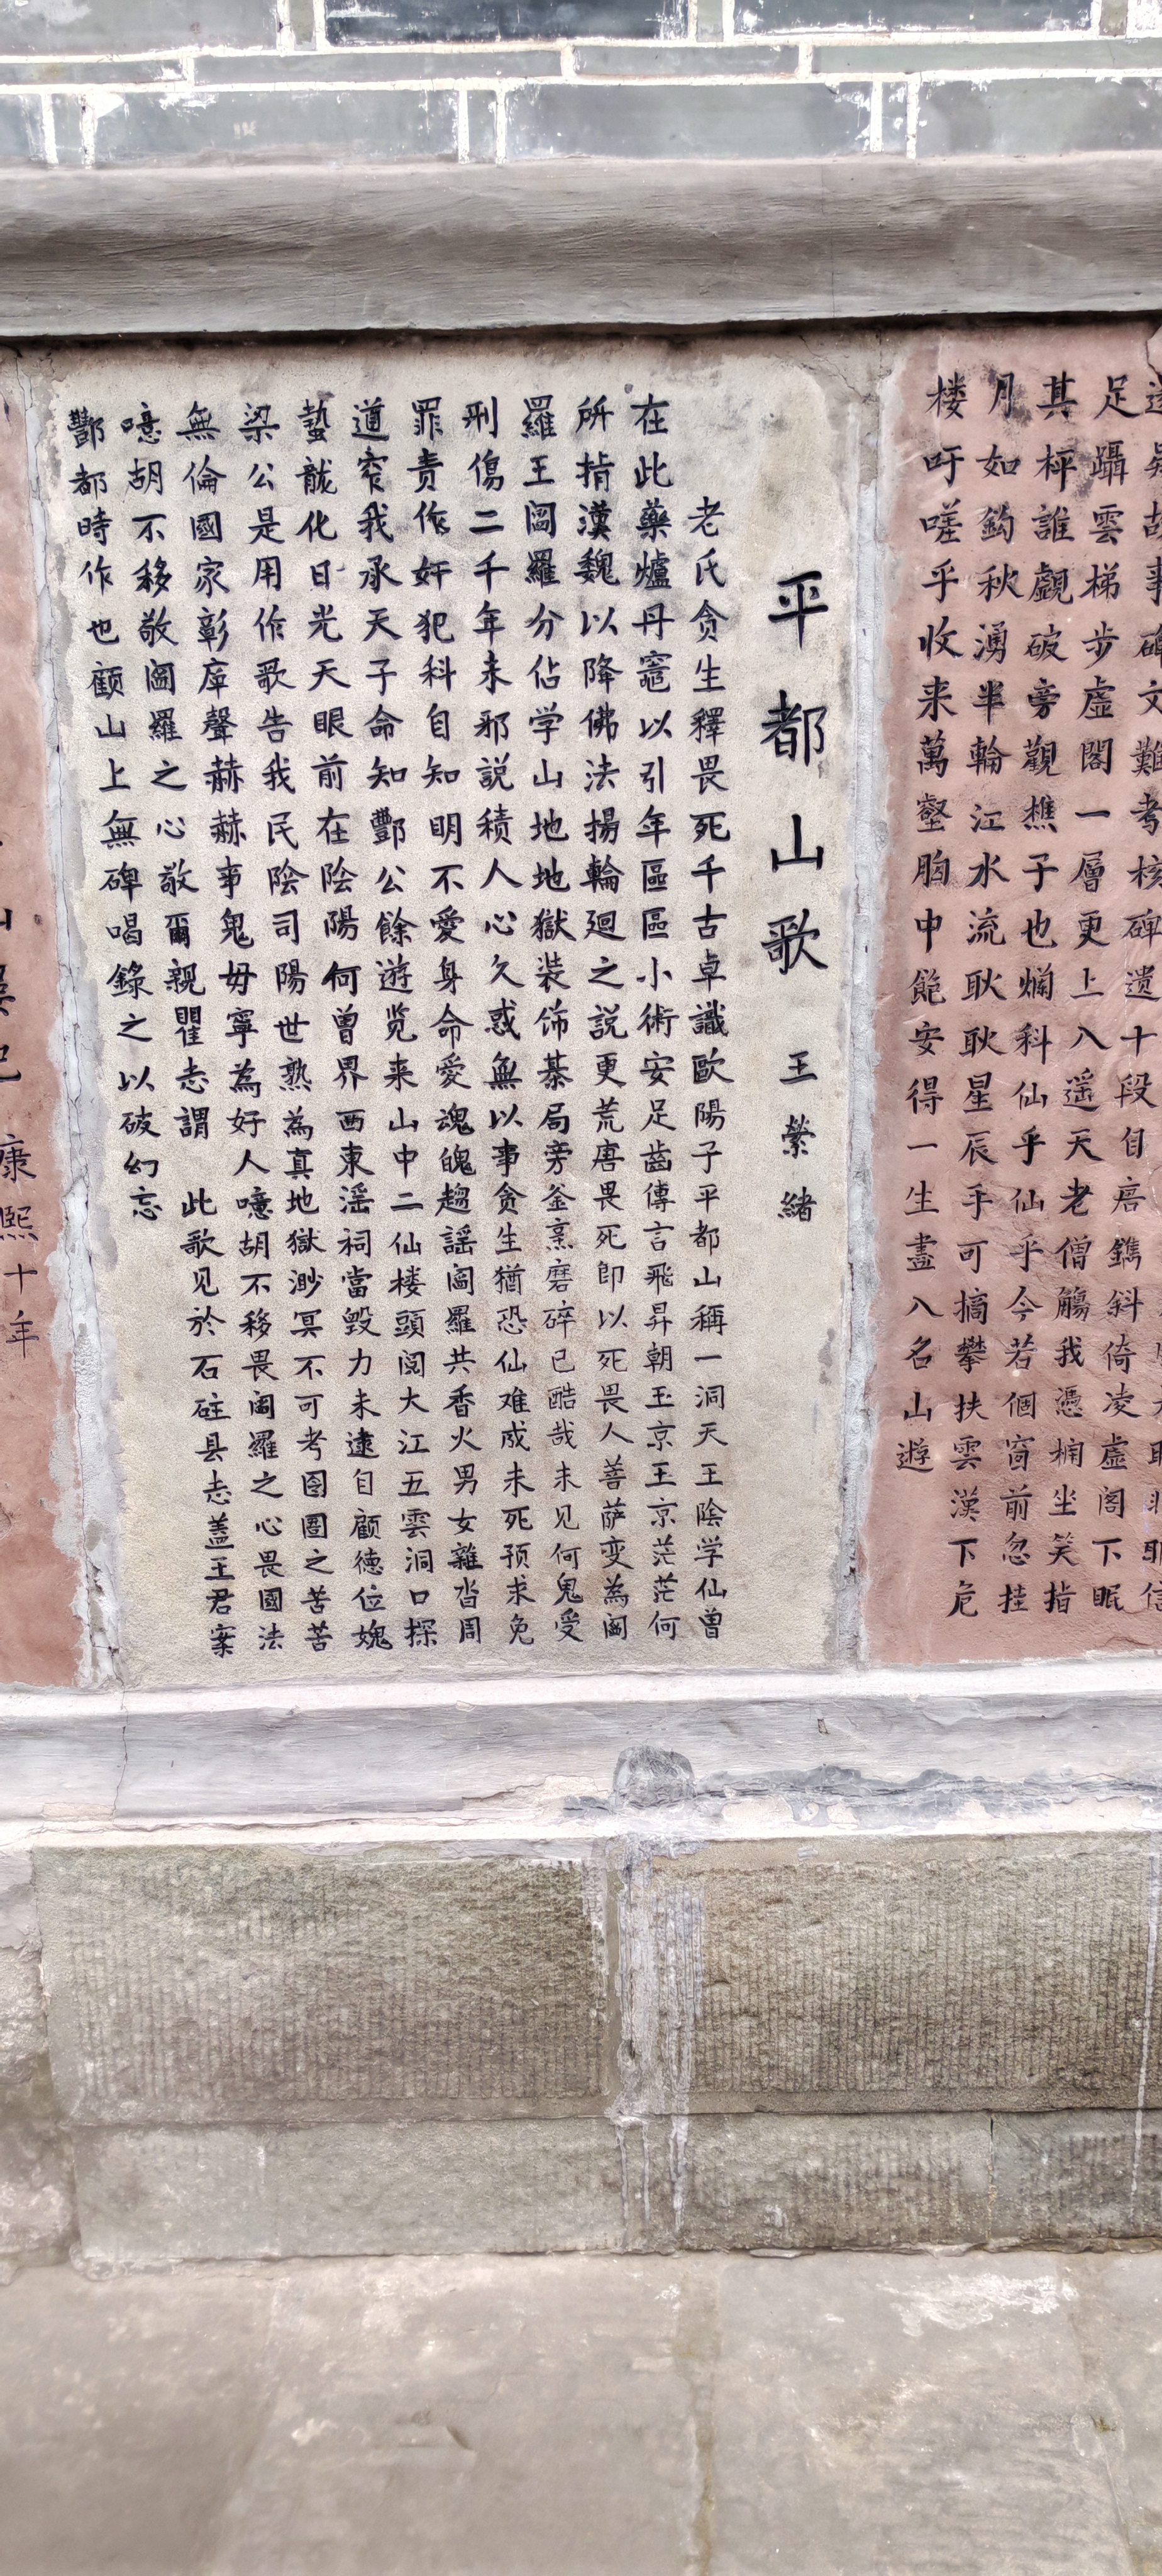 疑故事碑文難考核碑遺十段自唐鐫斜倚凌虛阁下眠
足躡雲梯步虛閣一層更上八遥天老僧觴我憑栏坐笑指
其枰誰觑破旁觀樵子也爛科仙乎仙乎今若個窗前忽挂
月如鈎秋湧半輪江水流耿耿星辰乎可摘攀扶雲漢下危
楼吁嗟乎收来萬壑胸中飽安得一生盡八名山遊
平都山歌 王縈緒
老氏贪生釋畏死千古卓識歐陽子平都山稱一洞天王陰学仙曾
在此藥爐丹竈以引年區區小術安足齒傳言飛昇朝玉京玉京茫茫何
所指漢魏以降佛法揚輪廻之説更荒唐畏死即以死畏人菩萨变為閻
羅王閻羅分佔学山地地獄装饰棊局旁釜烹磨碎已酷哉未见何鬼受
刑傷二千年来邪説積人心久惑無以事贪生猶恐仙难成未死预求免
罪责作奸犯科自知明不愛身命愛魂魄趨謡閻羅共香火男女雜沓周
道窄我承天子命知酆公餘遊览来山中二仙楼頭閲大江五雲洞口探
蟄龍化日光天眼前在陰陽何曾界西東滛祠當毁力未逮自顧德位媿
梁公是用作歌告我民陰司陽世熟為真地獄渺冥不可考囹圄之苦苦
無倫國家彰庫聲赫赫事鬼毋寧為好人噫胡不移畏閻羅之心畏國法
噫胡不移敬閻羅之心敬爾親瞿志謂 此歌见於石砫县志蓋王君案
酆都時作也顧山上無碑喝錄之以破幻忘
康熙十年